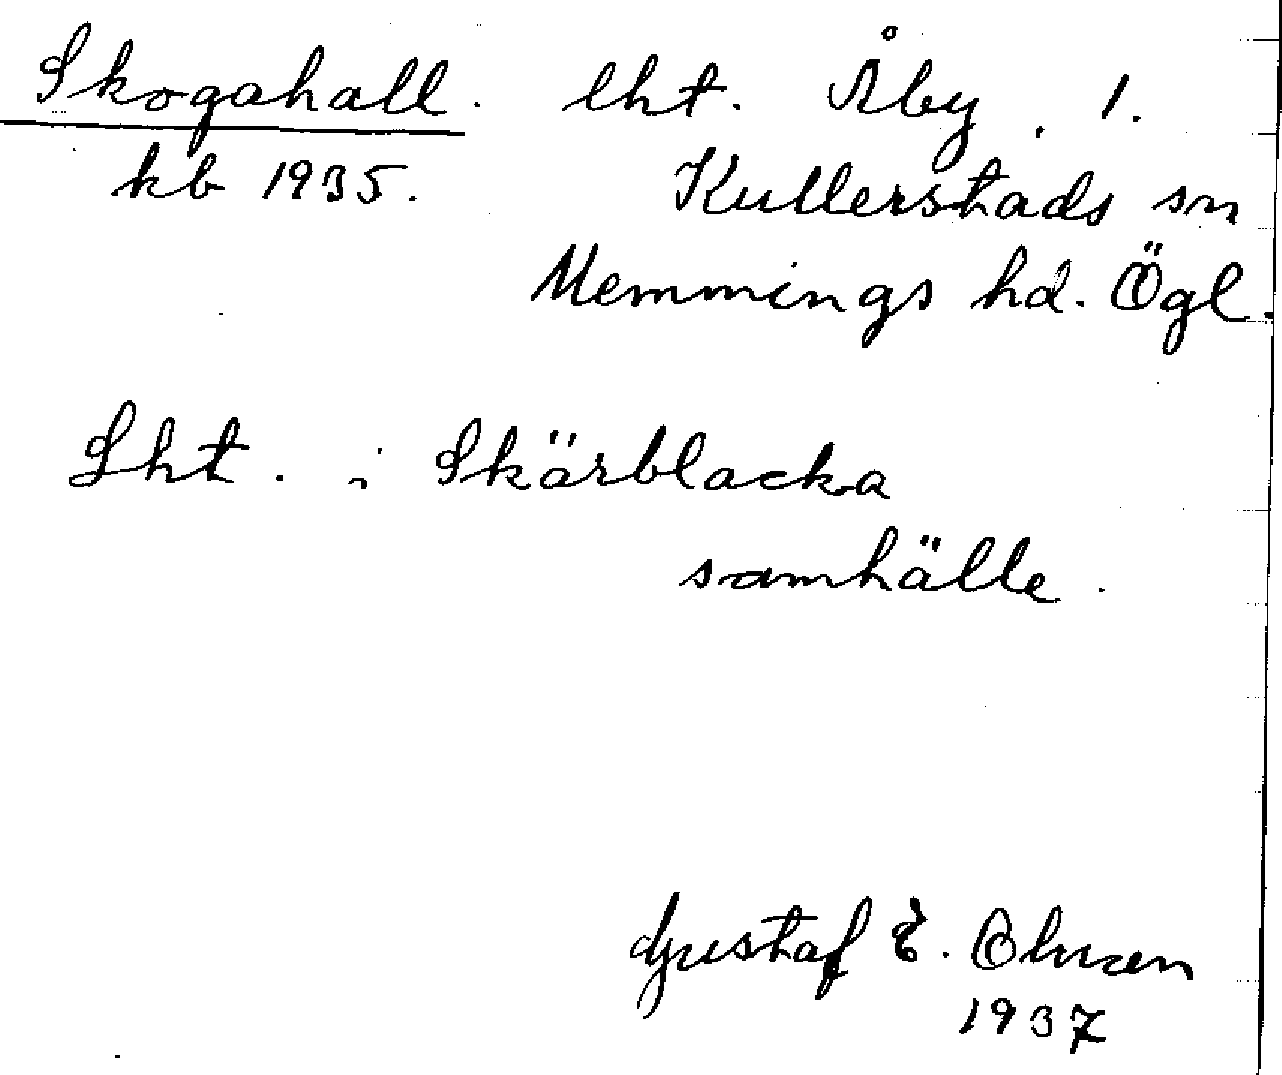 Skogahall. lht. Åby. 1.
kb 1935. Kullerstads sn
Memmings hd. Ögl.
Lht. i Skärblacka
samhälle.
Gustaf E.
1937